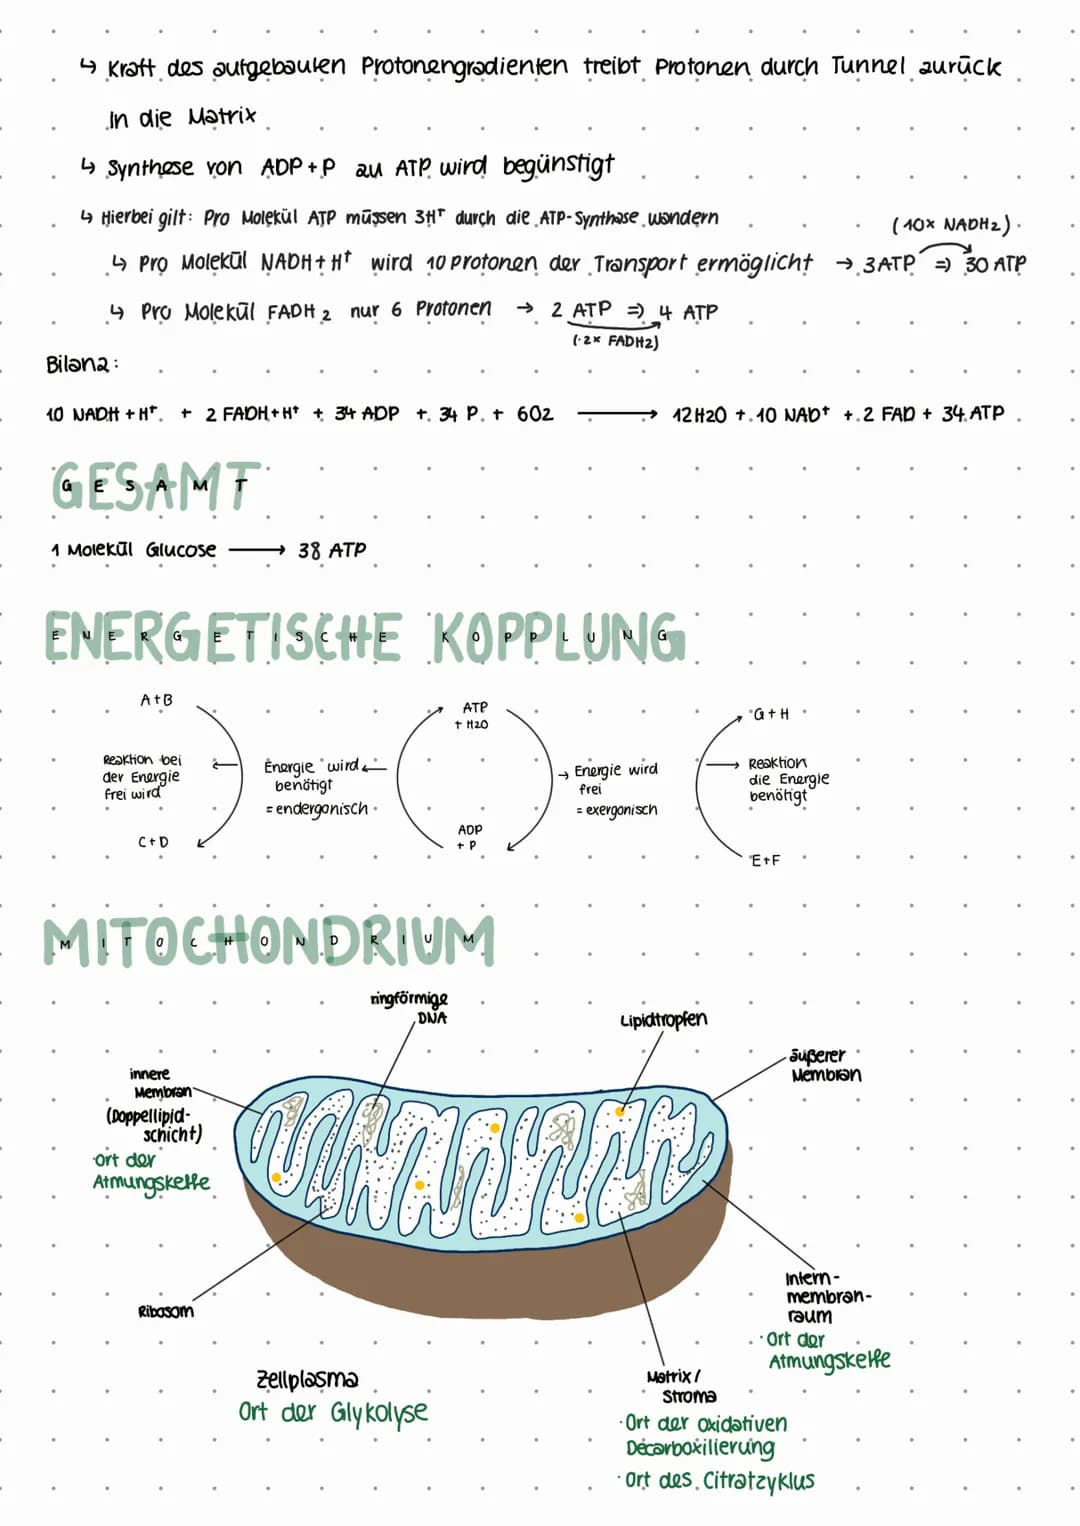 ↳ Kraft des aufgebauten Protonengradienten treibt Protonen durch Tunnel zurück
in die Matrix
↳ Synthese von ADP + P zu ATP wird begünstigt
↳ Hierbei gilt: Pro Molekül ATP müssen 3H⁺ durch die ATP-Synthase wandern
(10x NADH2)
↳ Pro Molekül NADH + H⁺ wird 10 Protonen der Transport ermöglicht → 3ATP ⇒ 30 ATP
↳ Pro Molekül FADH2 nur 6 Protonen → 2 ATP ⇒ 4 ATP
(·2x FADH2)
Bilanz:
10 NADH + H⁺ + 2 FADH + H⁺ + 34 ADP + 34 P + 6O2 → 12H2O + 10 NAD⁺ + 2 FAD + 34 ATP
GESAMT
GESAMT
1 Molekül Glucose → 38 ATP
ENERGETISCHE KOPPLUNG
ENERGETISCHE KOPPLUNG
A+B
Reaktion bei
der Energie
frei wird
C+D
Energie wird
benötigt
= endergonisch
ATP
+ H2O
ADP
+ P
→ Energie wird
frei
= exergonisch
G+H
Reaktion
die Energie
benötigt
E+F
MITOCHONDRIUM
MITOCHONDRIUM
ringförmige
DNA
Lipidtropfen
äußerer
Membran
innere
Membran
(Doppellipid-
schicht)
·Ort der
Atmungskette
Ribosom
Intern-
membran-
raum
·Ort der
Atmungskette
Zellplasma
Ort der Glykolyse
Matrix/
Stroma
·Ort der oxidativen
Decarboxilierung
·Ort des Citratzyklus